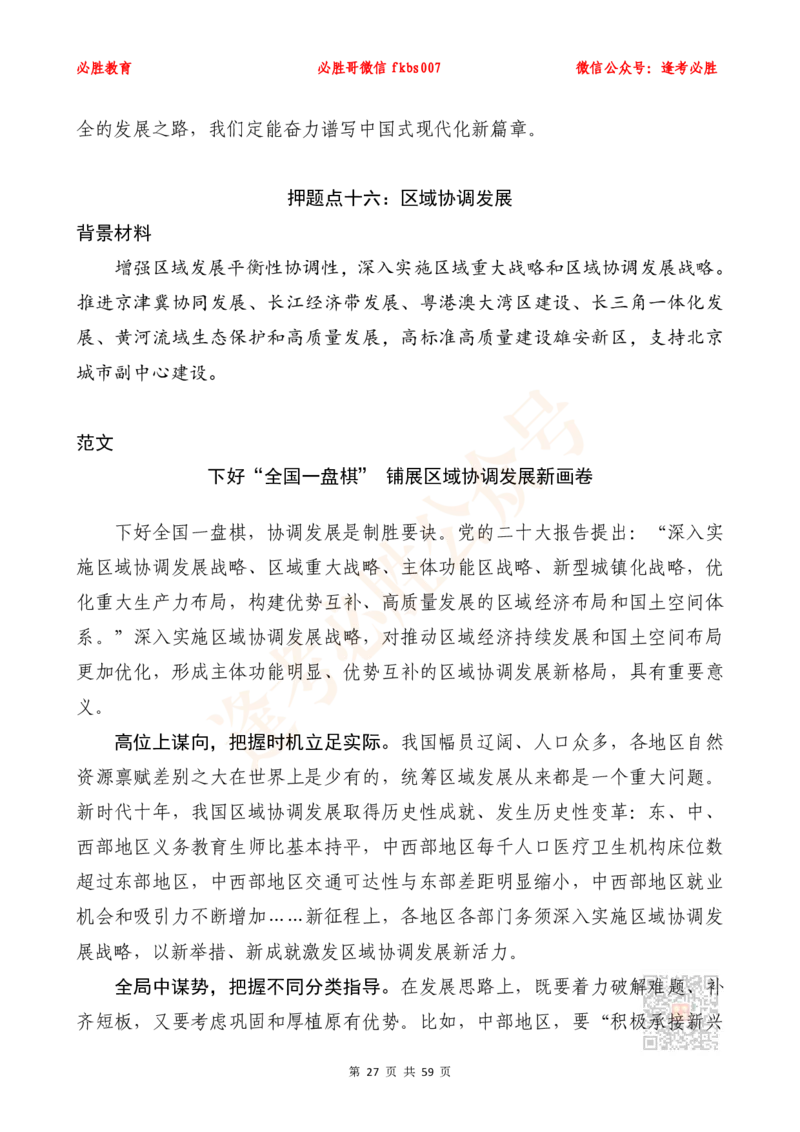 必胜教育 必胜哥微信 fkbs007 微信公众号：逢考必胜
全的发展之路，我们定能奋力谱写中国式现代化新篇章。
押题点十六：区域协调发展
背景材料
增强区域发展平衡性协调性，深入实施区域重大战略和区域协调发展战略。
推进京津冀协同发展、长江经济带发展、粤港澳大湾区建设、长三角一体化发
展、黄河流域生态保护和高质量发展，高标准高质量建设雄安新区，支持北京
城市副中心建设。
范文
下好“全国一盘棋” 铺展区域协调发展新画卷
下好全国一盘棋，协调发展是制胜要诀。党的二十大报告提出：“深入实
施区域协调发展战略、区域重大战略、主体功能区战略、新型城镇化战略，优
化重大生产力布局，构建优势互补、高质量发展的区域经济布局和国土空间体
系。”深入实施区域协调发展战略，对推动区域经济持续发展和国土空间布局
更加优化，形成主体功能明显、优势互补的区域协调发展新格局，具有重要意
义。
高位上谋向，把握时机立足实际。我国幅员辽阔、人口众多，各地区自然
资源禀赋差别之大在世界上是少有的，统筹区域发展从来都是一个重大问题。
新时代十年，我国区域协调发展取得历史性成就、发生历史性变革：东、中、
西部地区义务教育生师比基本持平，中西部地区每千人口医疗卫生机构床位数
超过东部地区，中西部地区交通可达性与东部差距明显缩小，中西部地区就业
机会和吸引力不断增加……新征程上，各地区各部门务须深入实施区域协调发
展战略，以新举措、新成就激发区域协调发展新活力。
全局中谋势，把握不同分类指导。在发展思路上，既要着力破解难题、补
齐短板，又要考虑巩固和厚植原有优势。比如，中部地区，要“积极承接新兴
第 27 页 共 59 页
逢考必胜公众号